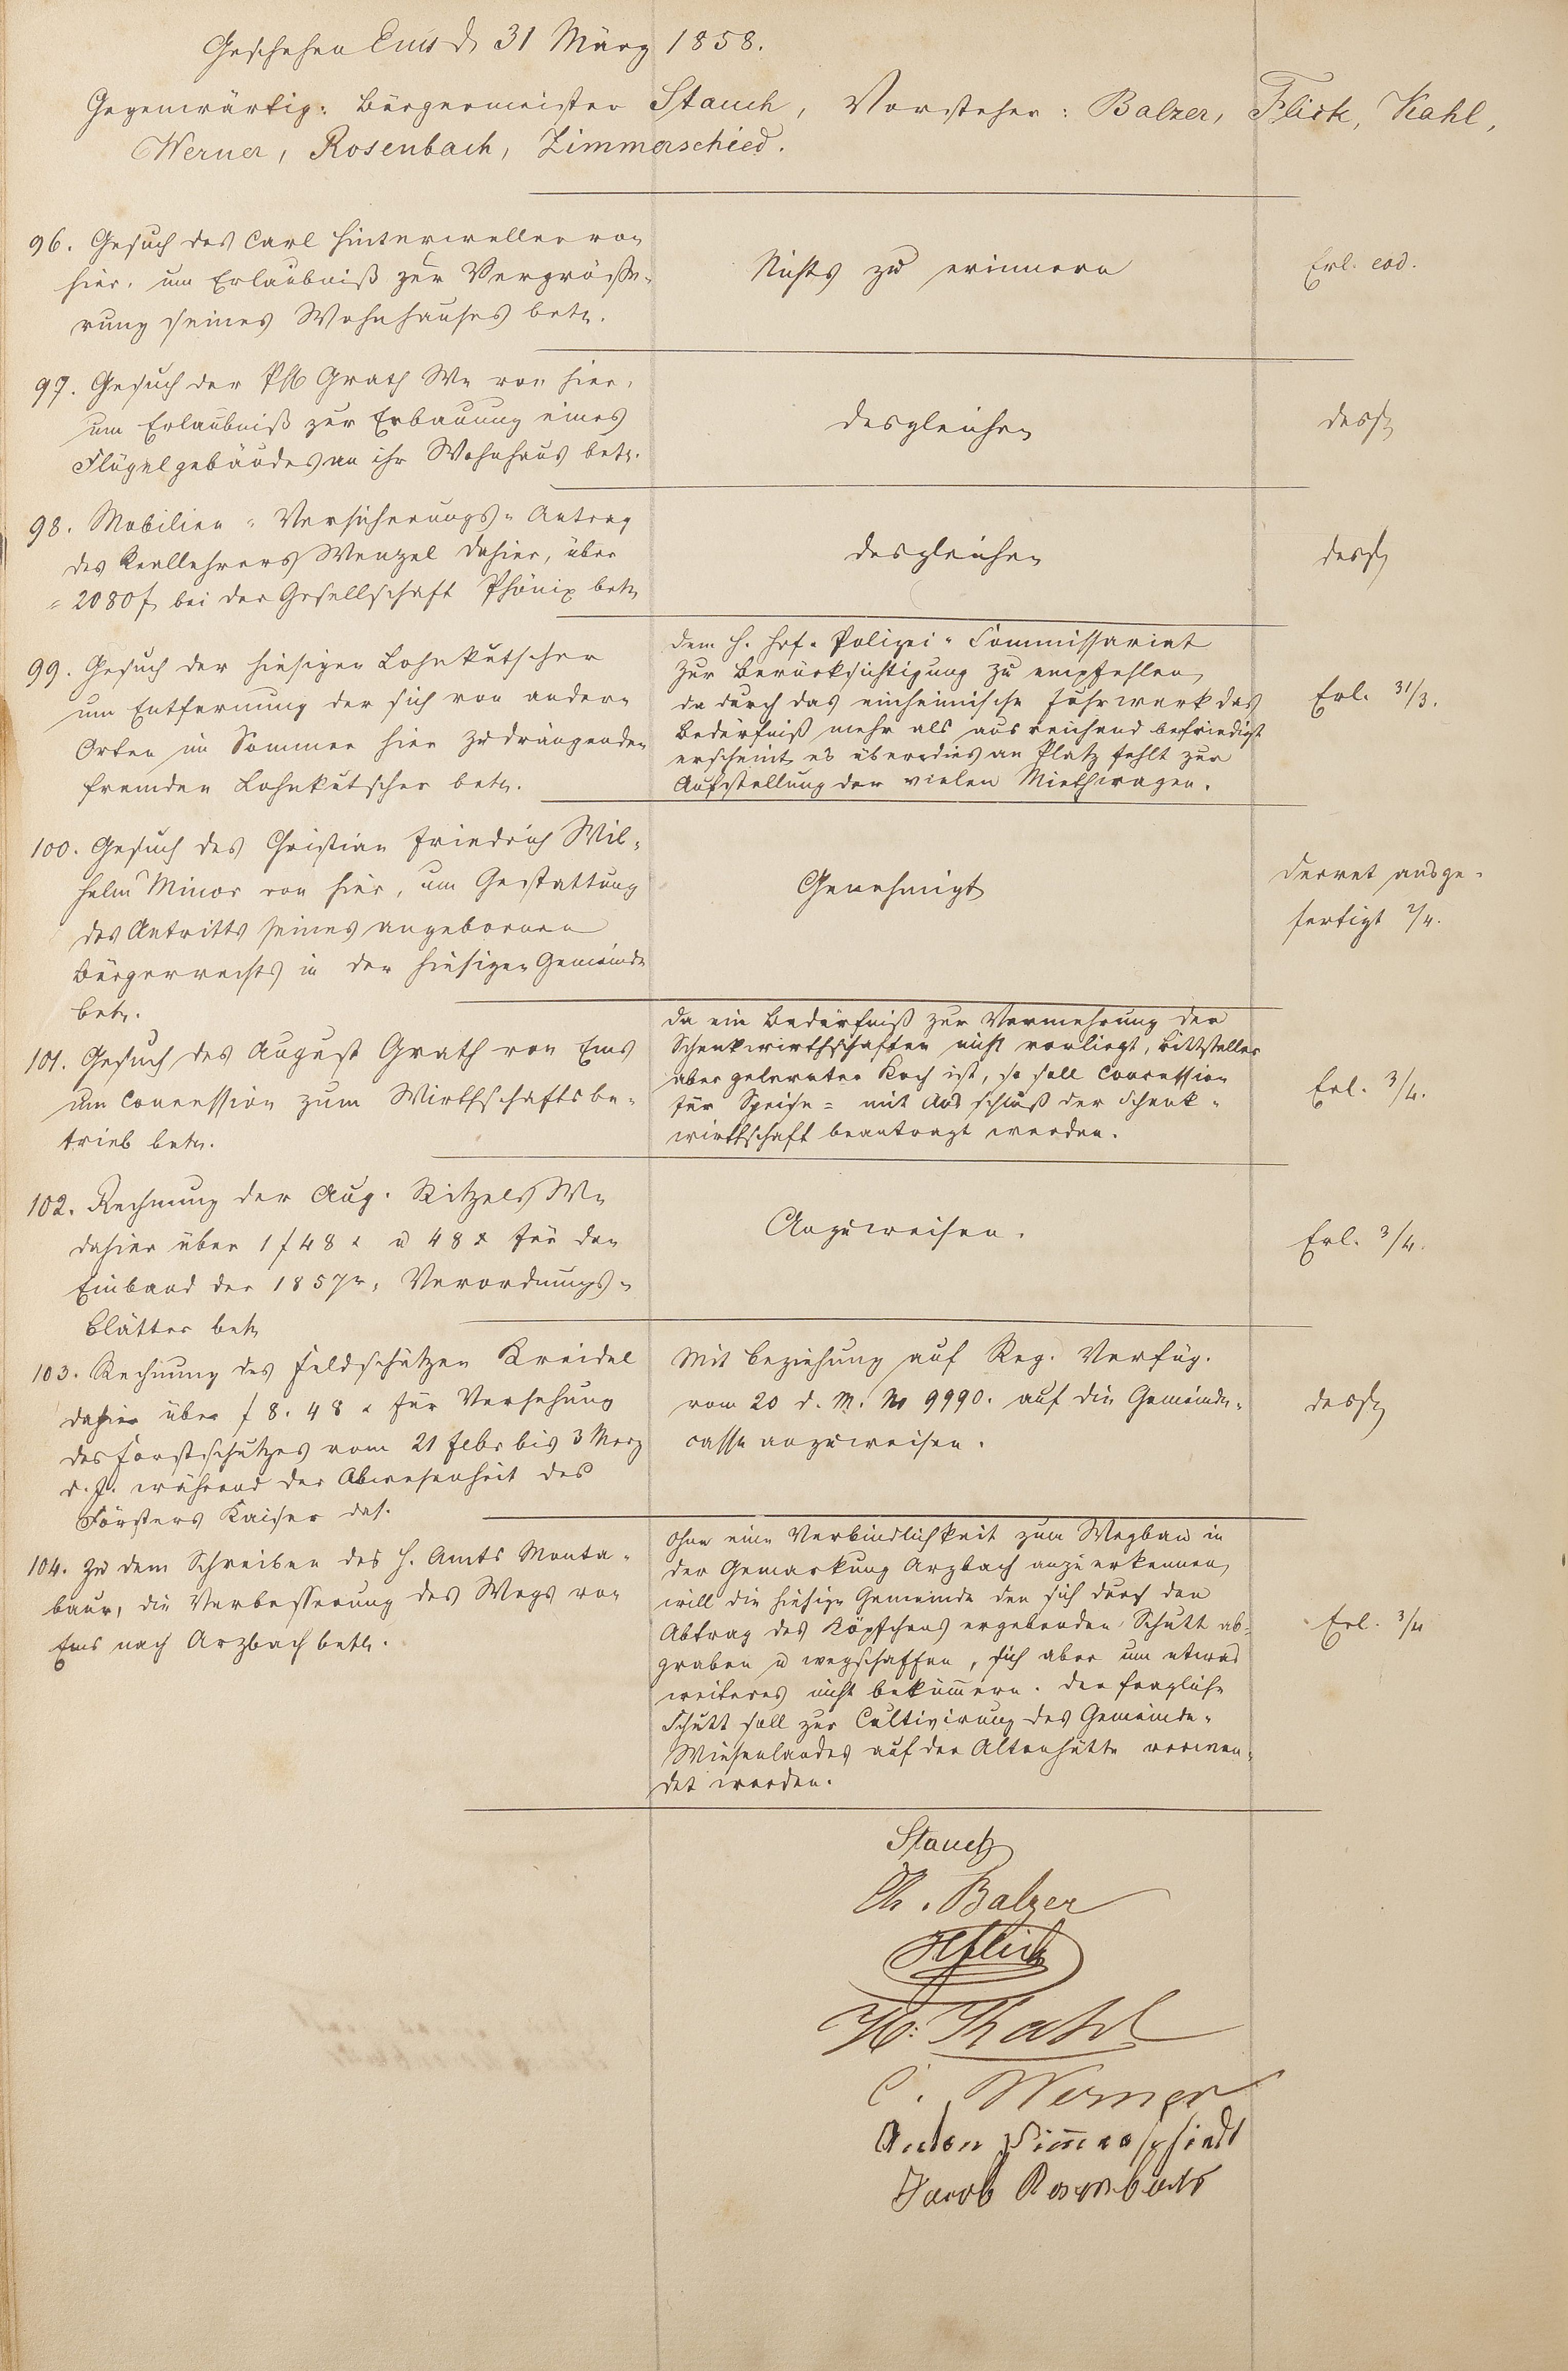 Geschehen Ems d. 31 März 1858.
Gegenwärtig: Bürgermeister Stauch, Vorsteher: Balzer, Flick, Kahl,
Werner, Rosenbach, Zimmerschied.
96. Gesuch des Carl Hinterweller von
hier, um Erlaubniß zur Vergröße-
rung seines Wohnhauses betr.
Nichts zu erinnern
Erl. eod.
97. Gesuch der Grath We von hier,
um Erlaubniß zur Erbauung eines
Flügelgebäudes an ihr Wohnhaus betr.
desgleichen
desgl
98. Mobilien-Versicherungs-Antrag
des Reallehrers Wenzel dahier, über
2080 f bei der Gesellschaft Phönix betr
desgleichen
desgl
99. Gesuch der hiesigen Lohnkutscher
um Entfernung der sich von andern
Orten im Sommer hier zudrängenden
fremden Lohnkutscher betr.
dem H. Hrz. Polizei-Commissariat
zur Berücksichtigung zu empfehlen,
da durch das einheimische Fuhrwerk das
Bedürfniß mehr als ausreichend befriedigt
erscheint, es überdies an Platz fehlt zur
Aufstellung der vielen Miethwagen.
Erl. 31/3.
100. Gesuch des Christian Friedrich Wil-
helm Minor von hier, um Gestattung
des Antritts seines angebornen
Bürgerrechts in der hiesigen Gemeinde
betr.
Genehmigt
Decret ausge-
fertigt 2/4.
101. Gesuch des August Grath von Ems
um Concession zum Wirthschaftsbe-
trieb betr.
Da ein Bedürfniß zur Vermehrung der
Schenkwirthschaften nicht vorliegt, Bittsteller
aber gelernter Koch ist, so soll Concession
für Speise- mit Ausschluß der Schenk-
wirthschaft beantragt werden.
Erl. 3/4.
102. Rechnung der Aug. Ritzels We
dahier über 1 f 48 x u 48 x für den
Einband der 1857r. Verordnungs-
blätter betr
Anzuweisen.
Erl. 3/4.
103. Rechnung des Feldschützen Kreidel
dahier über f 8. 48 x für Versehung
des Forstschutzes vom 21 Febr bis 3 Merz
d. J. während der Abwesenheit des
Försters Kaiser das.
Mit Beziehung auf Reg. Verfüg.
vom 20 d. M. No 9990. auf die Gemeinde-
casse anzuweisen.
desgl
104. Zu dem Schreiben des H. Amts Monta-
baur, die Verbesserung des Wegs von
Ems nach Arzbach betr.
Ohne eine Verbindlichkeit zum Wegbau in
der Gemarkung Arzbach anzuerkennen,
will die hiesige Gemeinde den sich durch den
Abtrag des Köpfchens ergebenden Schutt ab-
graben u wegschaffen, sich aber um etwas
weiteres nicht bekümern. Der fragliche
Schutt soll zur Cultivirung des Gemeinde-
Wiesenlandes auf der Altenhütte verwen-
det werden.
Erl. 3/4
Stauch
Ch. Balzer
Flick
H: Kahl
C. Werner
Anton Zimerschiedt
Jacob Rosenbach